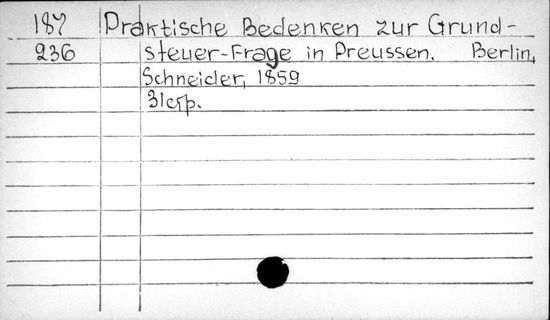 187 Praktische Bedenken zur Grund-
236 steuer-Frage in Preussen. Berlin,
Schneider, 1859
31 стр.